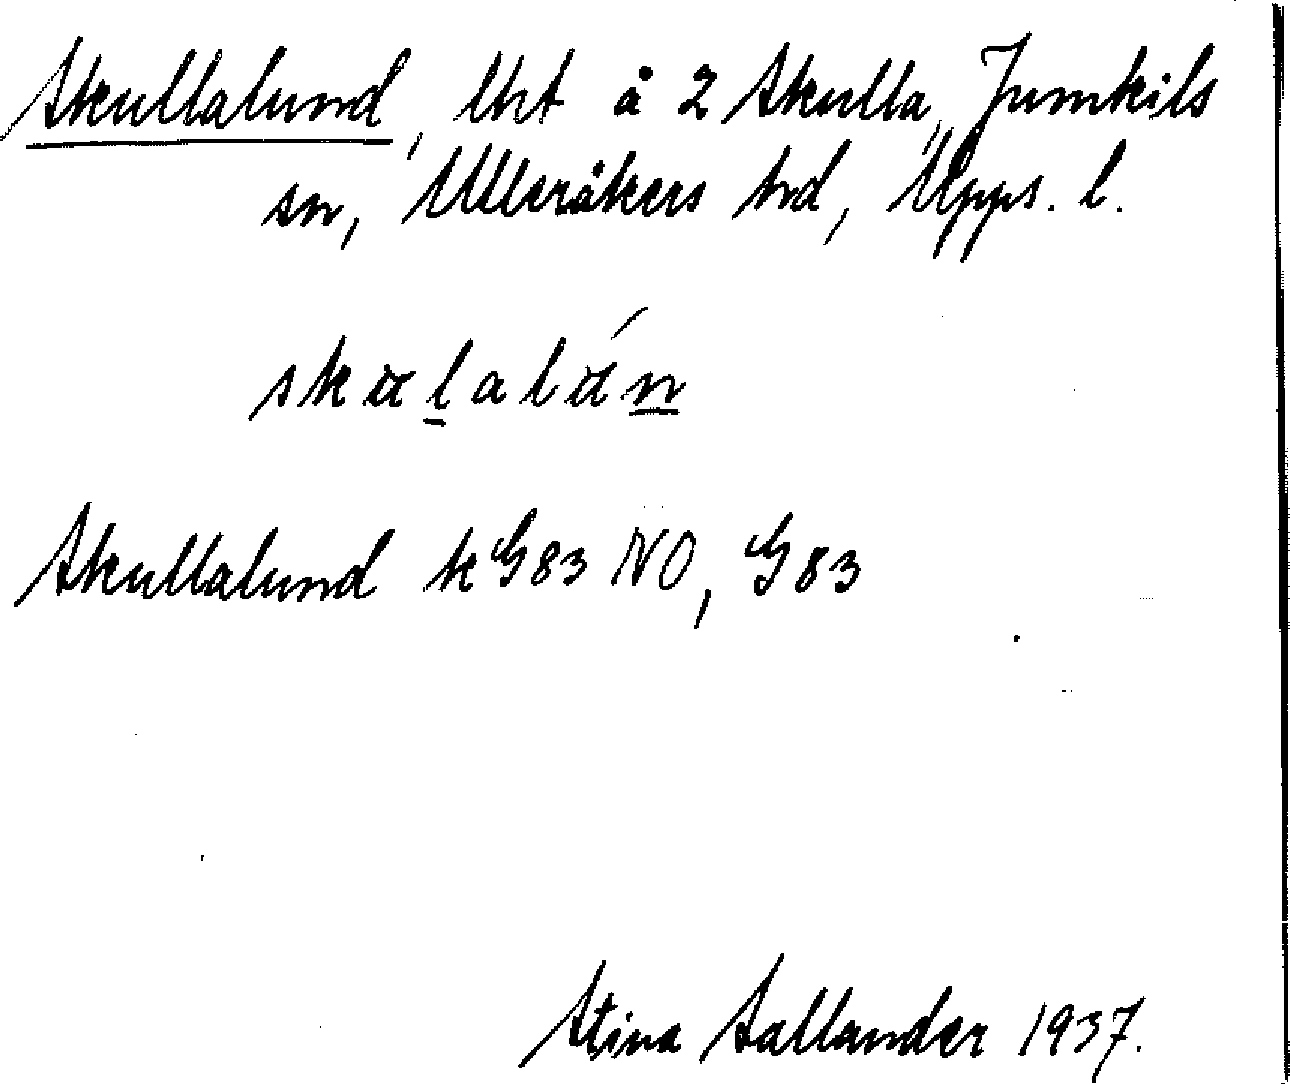 Skullalund, lht å 2 Skulla, Jumkils
sn, Ulleråkers hd, Upps. l.
skαl̠alαń̠
Skullalund k G83 NO, G83
Stina Sallander 1937.